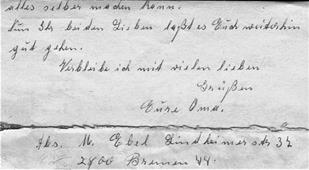 alles selber machen kann.
Nun Ihr beiden Lieben laßt es Euch weiterhin
gut gehen.
Verbleibe ich mit vielen lieben
Grüßen
Eure Oma.
Abs. M. Ebel Lindheimerstr 37
2800 Bremen 44.